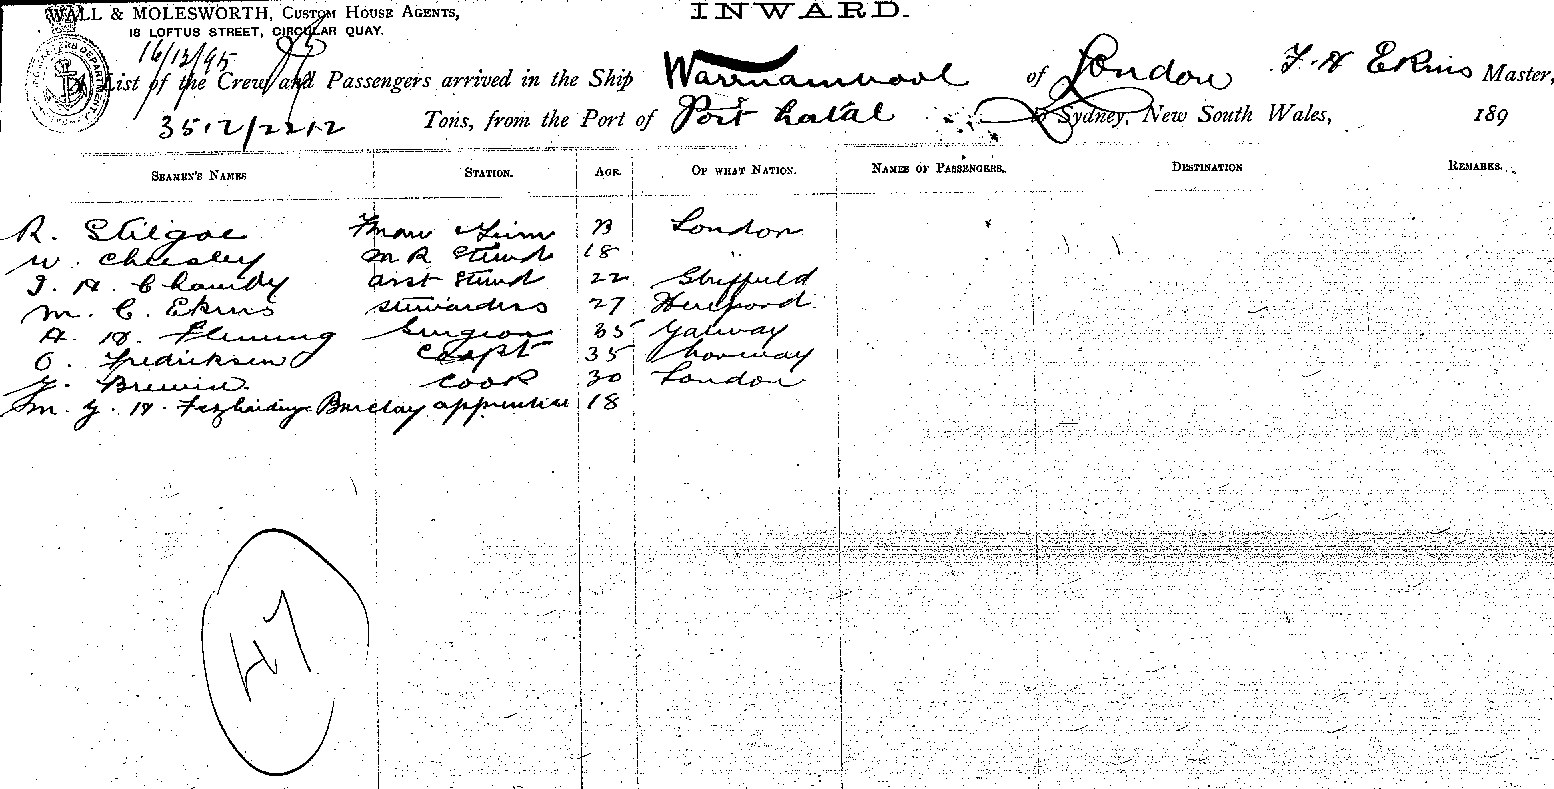 WALL & MOLESWORTH, CUSTOM HOUSE AGENTS,
18 LOFTUS STREET, CIRCULAR QUAY.
INWARD.
16/12/95
A List of the Crew and Passengers arrived in the Ship Warrnambool of London F H Ekins Master,
3512/2212 Tons, from the Port of Port Natal to Sydney, New South Wales, 189
SEAMEN'S NAMES STATION. AGE. OF WHAT NATION. NAMES OF PASSENGERS. DESTINATION REMARKS.
R. Stilgoe London
W. Cheesley M R Stewd 18 "
J. H. Chamby asst Stewd 22 Sheffield
M. C. Ekins stewardess 27 Hereford
A. H. Fleming Surgeon 35 Galway
O. Fredriksen Carpt 35 Norway
J. Brewin Cook 30 London
M. J. H. Fitzhardinge Barclay apprentice 18
47